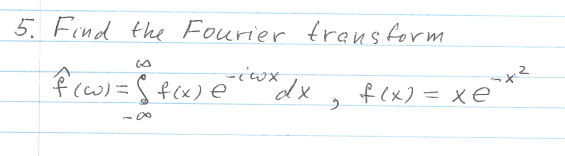 5. Find the Fourier transform
f̂(ω) = ∫_{-∞}^{∞} f(x) e^{-iωx} dx , f(x) = x e^{-x²}